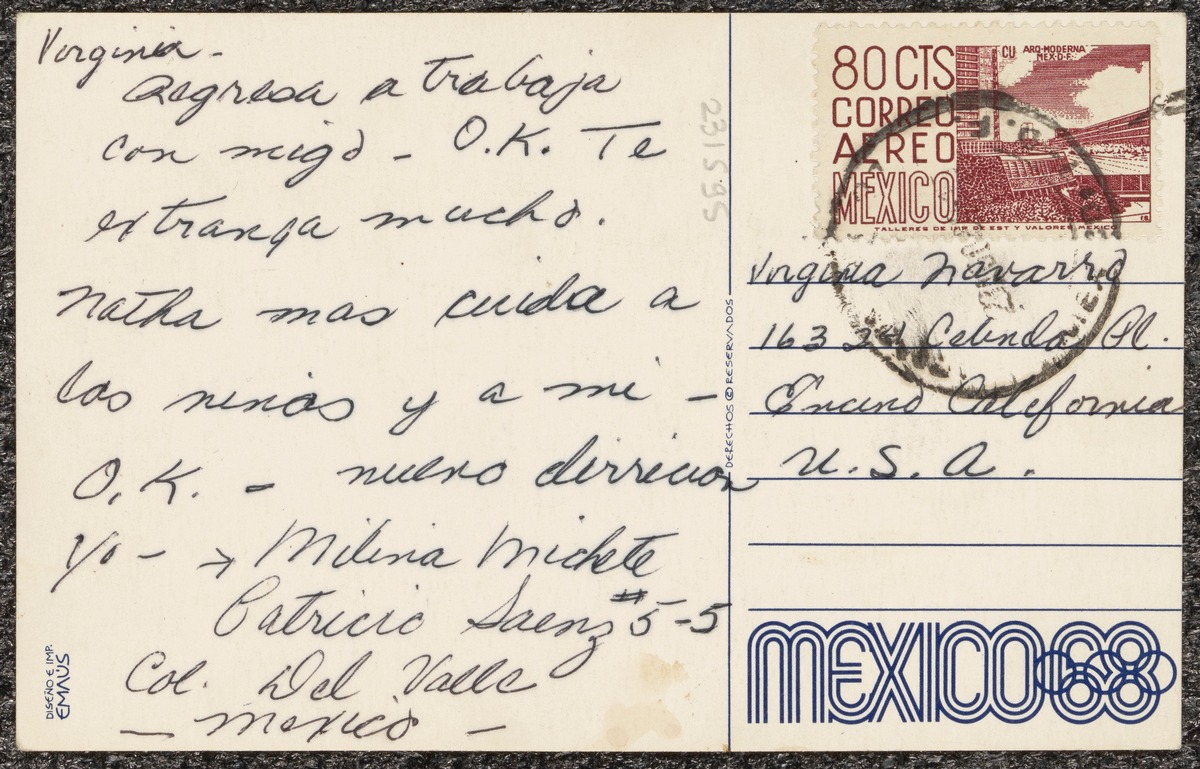 Virginia -
Regresa a trabaja
con migo - O.K. Te
extranga mucho.
Natha mas cuida a
los ninos y a mi -
O.K. - nuevo dirricion
Yo - → Milina Michete
Patricio Saenz #5-5
Col. Del Valle
- Mexico -
DISEÑO E IMP.
EMAÚS
231595
DERECHOS © RESERVADOS
80 CTS
CORREO
AEREO
MEXICO
CU ARQ-MODERNA
MEX.D.F.
TALLERES DE IMP DE EST Y VALORES MEXICO
Virginia Navarro
16324 Celinda Pl.
Encino California
U.S.A.
MEXICO68